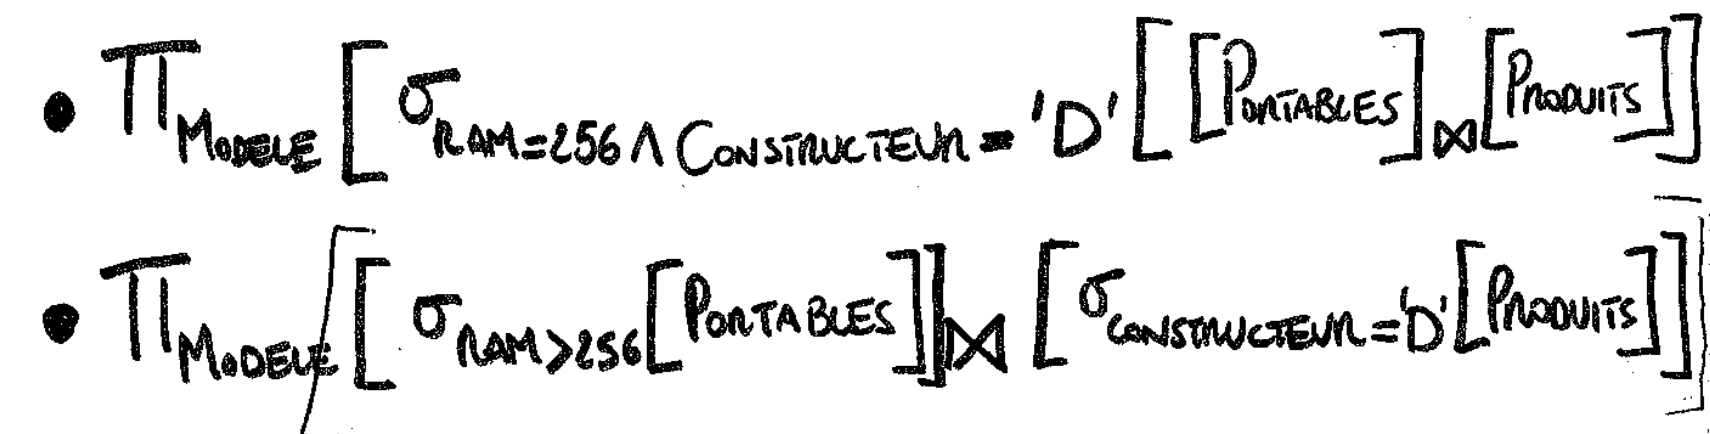 • Π MODELE [ σ RAM=256 ∧ CONSTRUCTEUR = 'D' [ [PORTABLES] ⋈ [PRODUITS] ] ]
• Π MODELE [ [ σ RAM>256 [PORTABLES] ] ⋈ [ σ CONSTRUCTEUR='D' [PRODUITS] ] ]